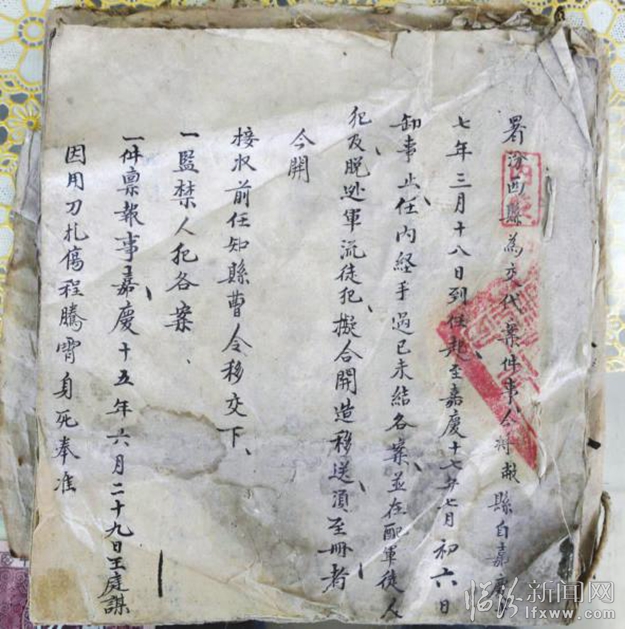 署汾西縣為交代案件事今將敝縣自嘉慶
七年三月十八日到任起至嘉慶十七年七月初六日
卸事止任內經手過已未結各案並在配軍徒人
犯及脫逃軍流徒犯擬合開造移送須至冊者
今開
接收前任知縣曹令移交下
一監禁人犯各案
一件稟報事嘉慶十五年六月二十九日王庭謀
因用刀扎傷程騰霄身死奉准
临汾新闻网
www.lfxww.com